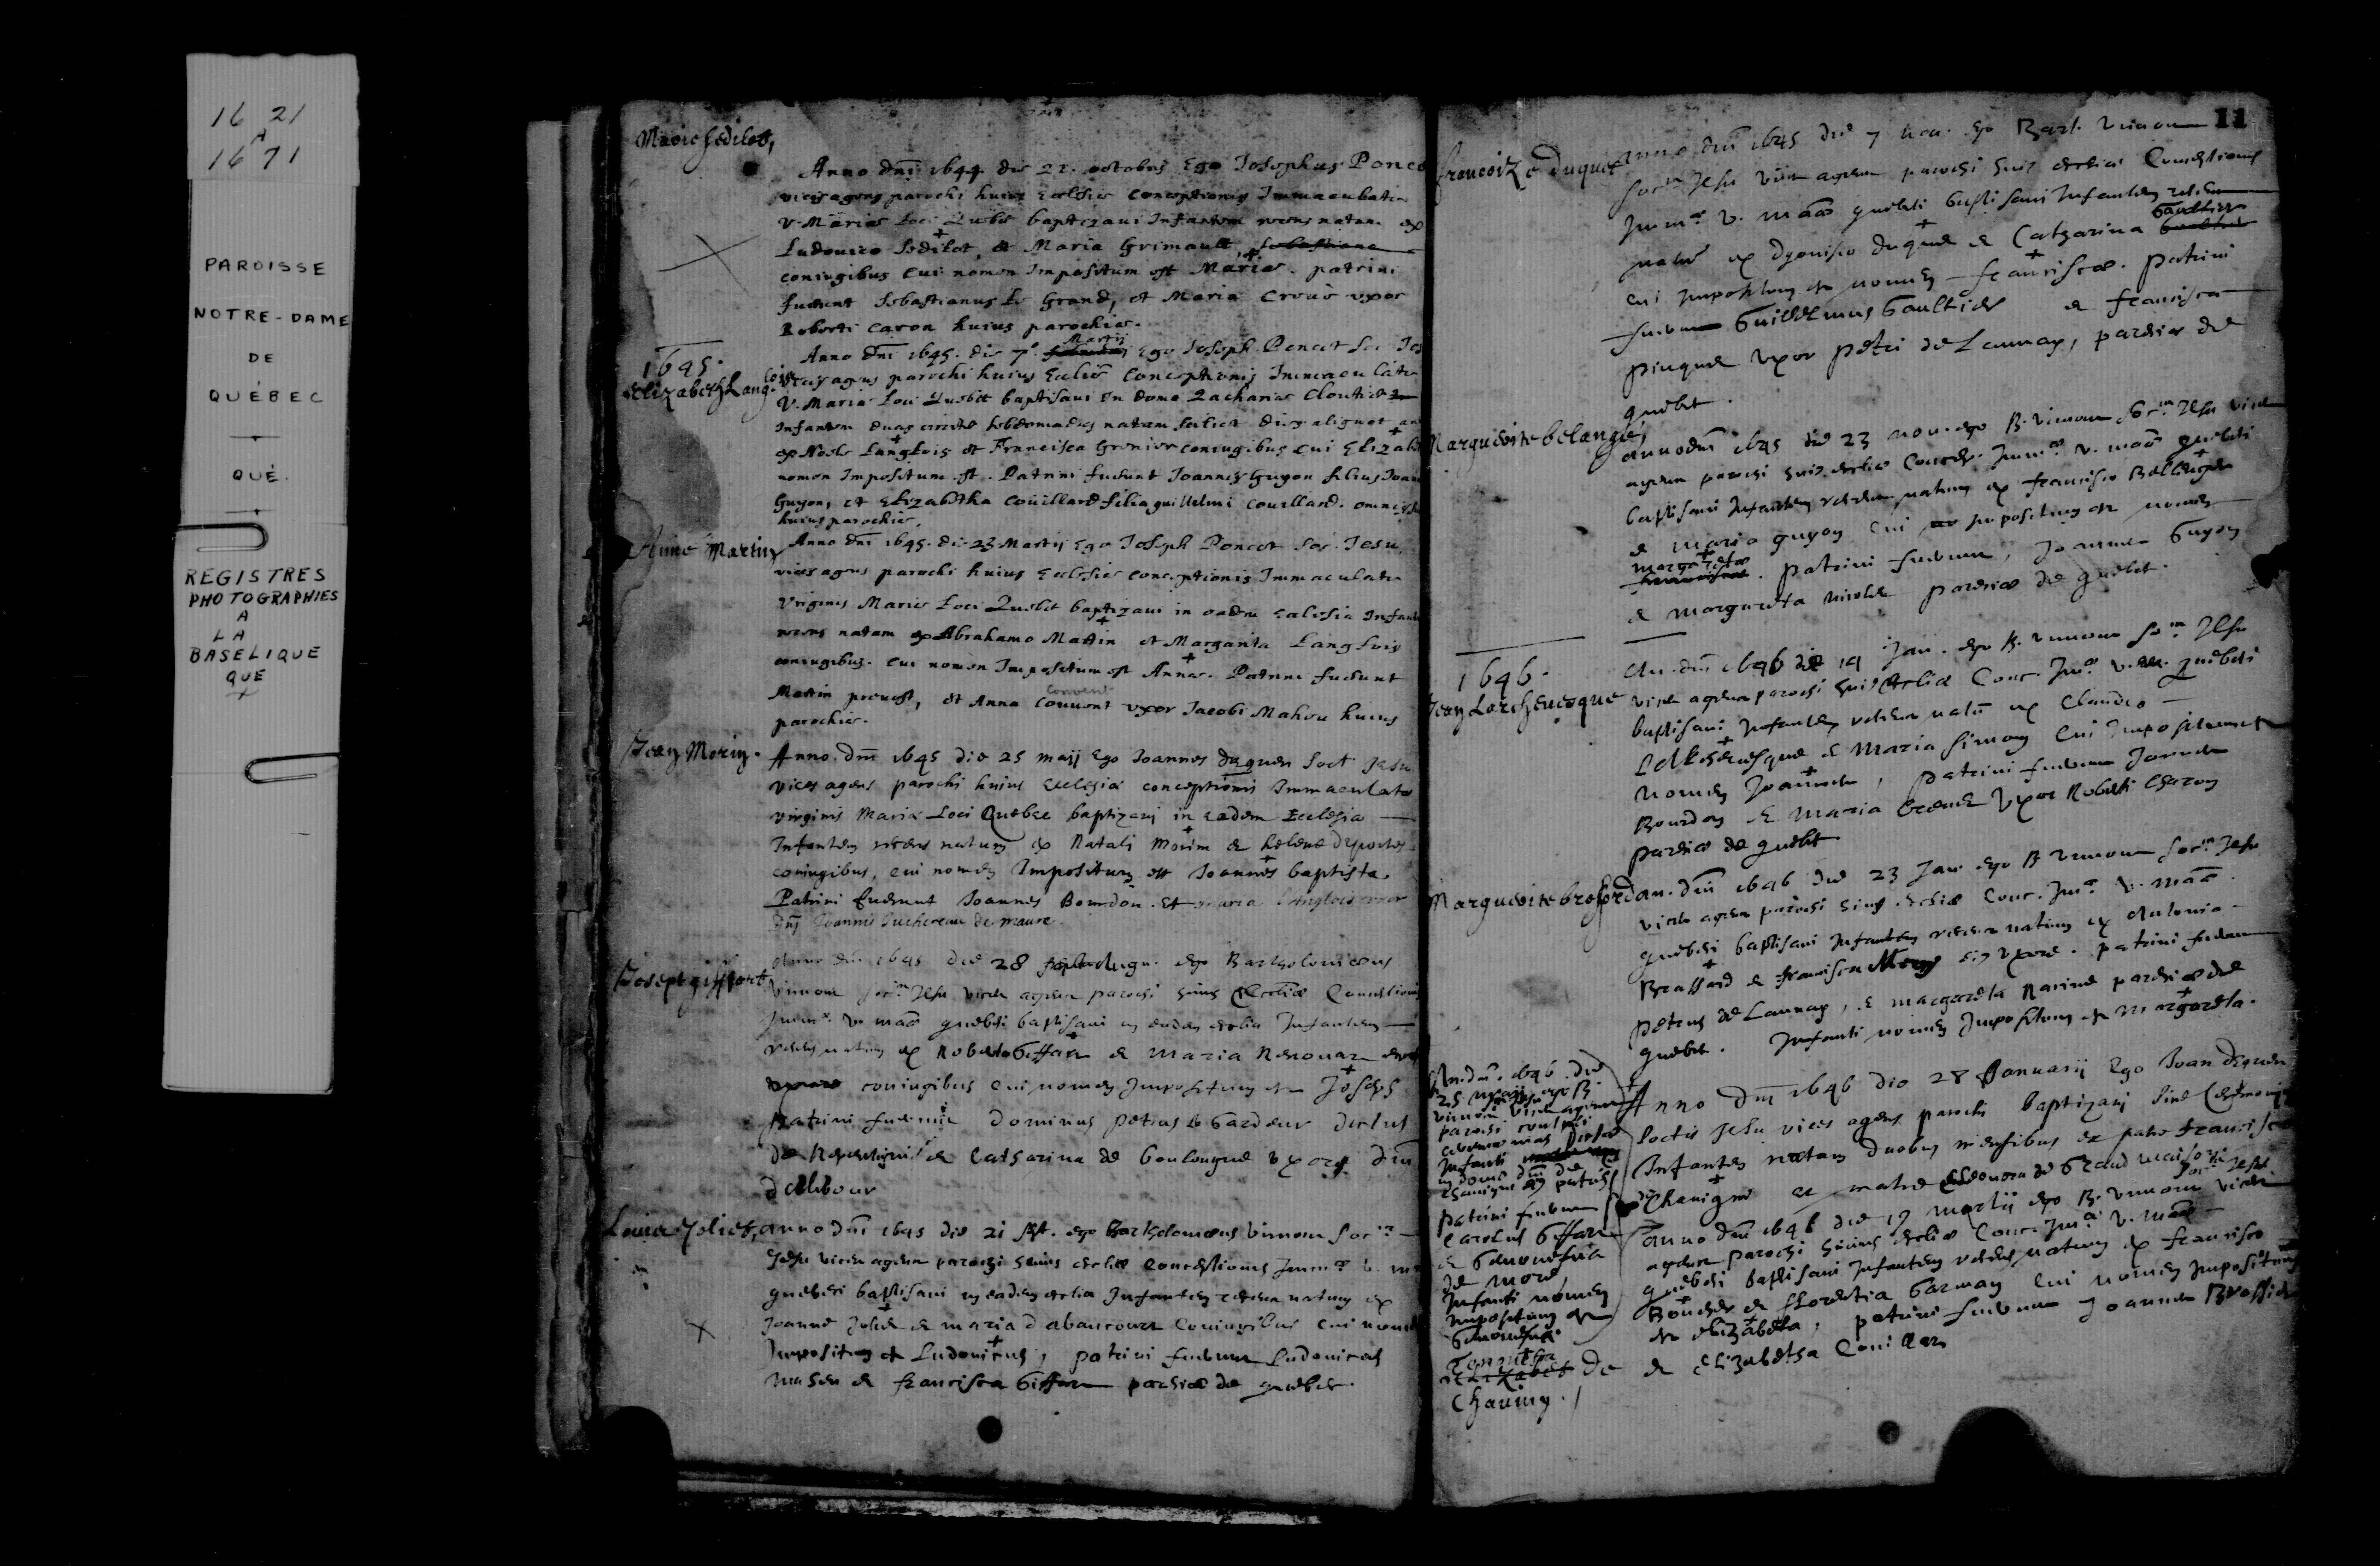 16 21
A
16 71
PAROISSE
NOTRE-DAME
DE
QUÉBEC
QUÉ.
REGISTRES
PHOTOGRAPHIES
A
LA
BASELIQUE
QUE
Marie Sedilot,
Anno dni 1644 die 22. octobris Ego Josephus Ponce
vices agens parochi huius Ecclesiæ Conceptionis Immaculatæ
V. Mariæ Loci Quebec baptizaui Infantem recens natam ex
Ludouico Sedilot, et Maria Grimault Sebastiana
coniugibus cui nomen Impositum est Mariæ. patrini
fuerunt Sebastianus Le Grand, et Maria Creuet vxor
Roberti Caron huius parochiæ.
1645.
Elizabeth Langlois
Martij
Anno dni 1645. die 7. Ego Joseph Poncet Soc. Jes
vices agens parochi huius Ecclesiæ Conceptionis Immaculatæ
V. Mariæ Loci Quebec baptisaui in domo Zachariæ Cloutier
Infantem duas circiter hebdomadas natam scilicet dies aliquot
ex Noele Langlois et Francisca Grenier coniugibus cui Elizab
nomen Impositum est. Patrini fuerunt Joannes Guyon filius Joan
Guyon, et Elizabetha Couillard filia guillelmi Couillard. omnes
huius parochiæ.
Anne Martin
Anno dni 1645. die 23 Martij Ego Joseph Poncet Soc. Jesu,
vices agens parochi huius Ecclesiæ Conceptionis Immaculatæ
Virginis Mariæ Loci Quebec baptizaui in eadem ecclesia Infant
recens natam ex Abrahamo Martin et Margarita Langlois
coniugibus. cui nomen Impositum est Annæ. Patrini fuerunt
Convent
Martin preuost, et Anna Couuent vxor Jacobi Mahou huius
parochiæ.
Jean Morin.
Anno dni 1645 die 25 maij Ego Joannes dequen Soct Jesu
vices agens parochi huius Ecclesiæ conceptionis Immaculatæ
virginis Mariæ Loci Quebec baptizaui in eadem Ecclesia
Infantem recens natum ex Natali Morin et helena deportes
coniugibus, cui nomen Impositum est Joannes baptista.
Patrini fuerunt Joannes Bourdon. et maria l'Anglois vxor
dnj Joannis Juchereau de maure
Joseph giffart
Anno dni 1645 die 28 Augu. ego Bartholomæus
Vimont Soc. Jesu vices agens parochi huius Ecclesiæ Conceptionis
Imm. V. maæ quebeci baptisaui in eadem ecclesia Infantem
recens natum ex Roberto Giffart et Maria Renouar
coniugibus cui nomen Impositum est Joseph
patrini fuerunt Dominus petrus le Gardeur dictus
de Repentigni et Catharina de Boulougne vxor dni
d'Ailleboust
Louis Joliet,
anno dni 1645 die 21 sept. ego Bartholomæus Vimont Soc
Jesu vices agens parochi huius ecclesiæ Conceptionis Imm. V. m
quebeci baptisaui in eadem ecclesia Infantem recens natum ex
Joanne Joliet et maria d'abancourt Coniugibus cui nomen
Impositum est Ludouicus, patrini fuerunt Ludouicus
maheu et francisca Giffar parochiæ de quebec.
11
francoize duquet
anno dni 1645 die 7 nou. ego Bart. Vimont
Soc Jesu vices agens parochi huius ecclesiæ Conceptionis
Imm. V. maæ quebeci baptisaui Infantem recens
natam ex dyonisio duquet et Catharina Gaultier
cui Impositum est nomen francisca. patrini
fuerunt Guillelmus Gaultier et francisca
pinguet vxor petri de Launay, parochiæ de
quebec.
Marguerite belanger
anno dni 1645 die 23 nou. ego B. Vimont Soc Jesu vices
agens parochi huius ecclesiæ Concep. Imm. V. maæ quebeci
baptisaui Infantem recens natam ex francisco Bellenger
et maria guyon cui Impositum est nomen
margareta
patrini fuerunt, Joannes Guyon
et margareta nicolet parochiæ de quebec.
1646.
Jean Larcheuesque
An. dni 1646 die 14 Jan. ego B. Vimont Soc Jesu
vices agens parochi huius Ecclesiæ Conc. Im. V. M. quebeci
baptisaui Infantem recens natum ex Claudio
Larcheuesque et Maria Simon cui Impositum est
nomen Joannes, patrini fuerunt Joannes
Bourdon et Maria Creuet vxor Roberti Charon
parochiæ de quebec
Marguerite bressar
an. dni 1646 die 23 Jan ego B Vimont Soc Jesu
vices agens parochi huius ecclesiæ Conc. Im. V. maæ
quebeci baptisaui Infantem recens natam ex Antonio
Brassard et francisca Mery eius vxore. patrini fuerunt
petrus de Launay, et margareta parochiæ de
quebec. Infanti nomen Impositum est margareta.
Anno Dni 1646 die 28 Januarij Ego Joan dequen
Soctis Jesu vices agens parochi baptizaui sine Ceremonijs
Infantem natam duobus mensibus ex patre francisco
de Chauigni et matre Eleonora de Grand maison
An. dni. 1646. die
25
ego B.
Vimont vices agens
parochi contuli
ceremonias
Infanti
in domo dni de
Chauigni patris
patrini fuerunt
Carolus Giffar
et Genouefua
de more,
Infanti nomen
Impositum est
Genouefua
de
Chauiny.
anno dni 1646 die 19 martij ego B. Vimont Soc Jesu vices
agens parochi huius ecclesiæ Conc. Im. V. maæ
quebeci baptisaui Infantem recens natam ex francisco
Boucher et florentia Garman cui nomen Impositum
est elizabeta, patrini fuerunt Joannes
et Elizabetha Couillar